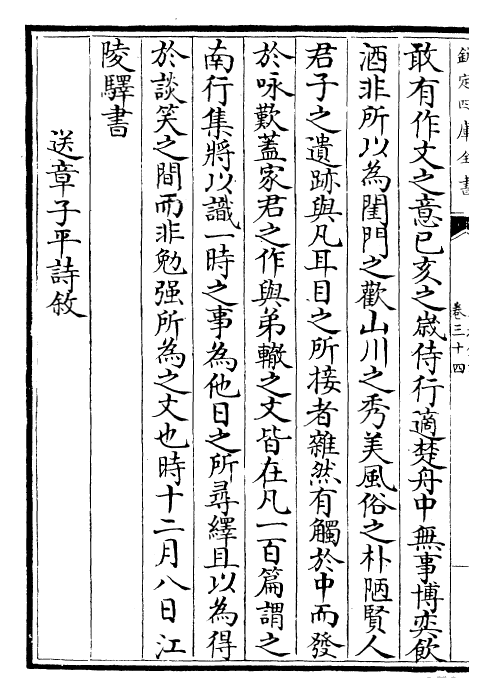 欽定四庫全書
卷三十四
敢有作文之意己亥之歲侍行適楚舟中無事博奕飲
酒非所以為閨門之歡山川之秀美風俗之朴陋賢人
君子之遺跡與凡耳目之所接者雜然有觸於中而發
於咏歎蓋家君之作與弟轍之文皆在凡一百篇謂之
南行集將以識一時之事為他日之所尋繹且以為得
於談笑之間而非勉强所為之文也時十二月八日江
陵驛書
送章子平詩敘